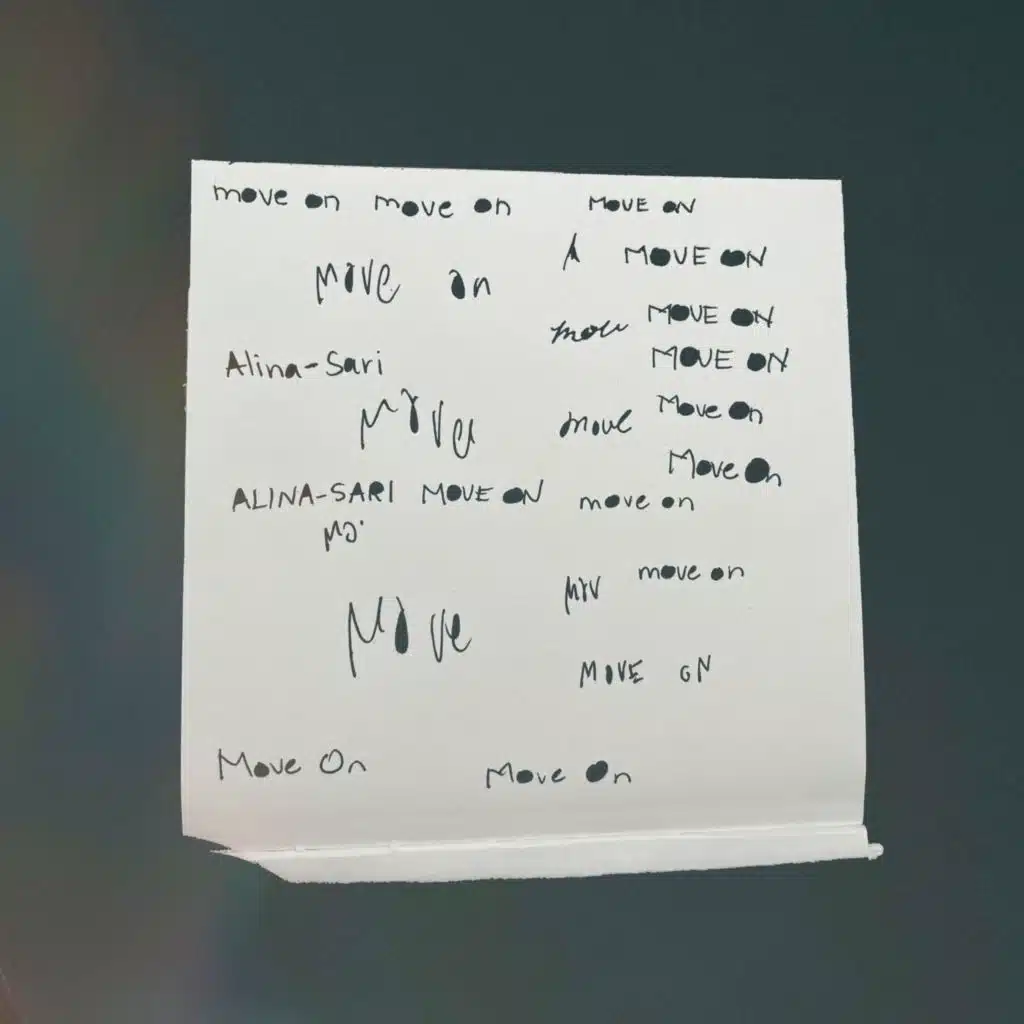 move on move on MOVE ON
MOVE ON
move on
MOVE ON
move
MOVE ON
Alina-Sari
Move On
move
move
Move On
ALINA-SARI MOVE ON move on
mo
move on
mov
move
MOVE ON
Move On Move On